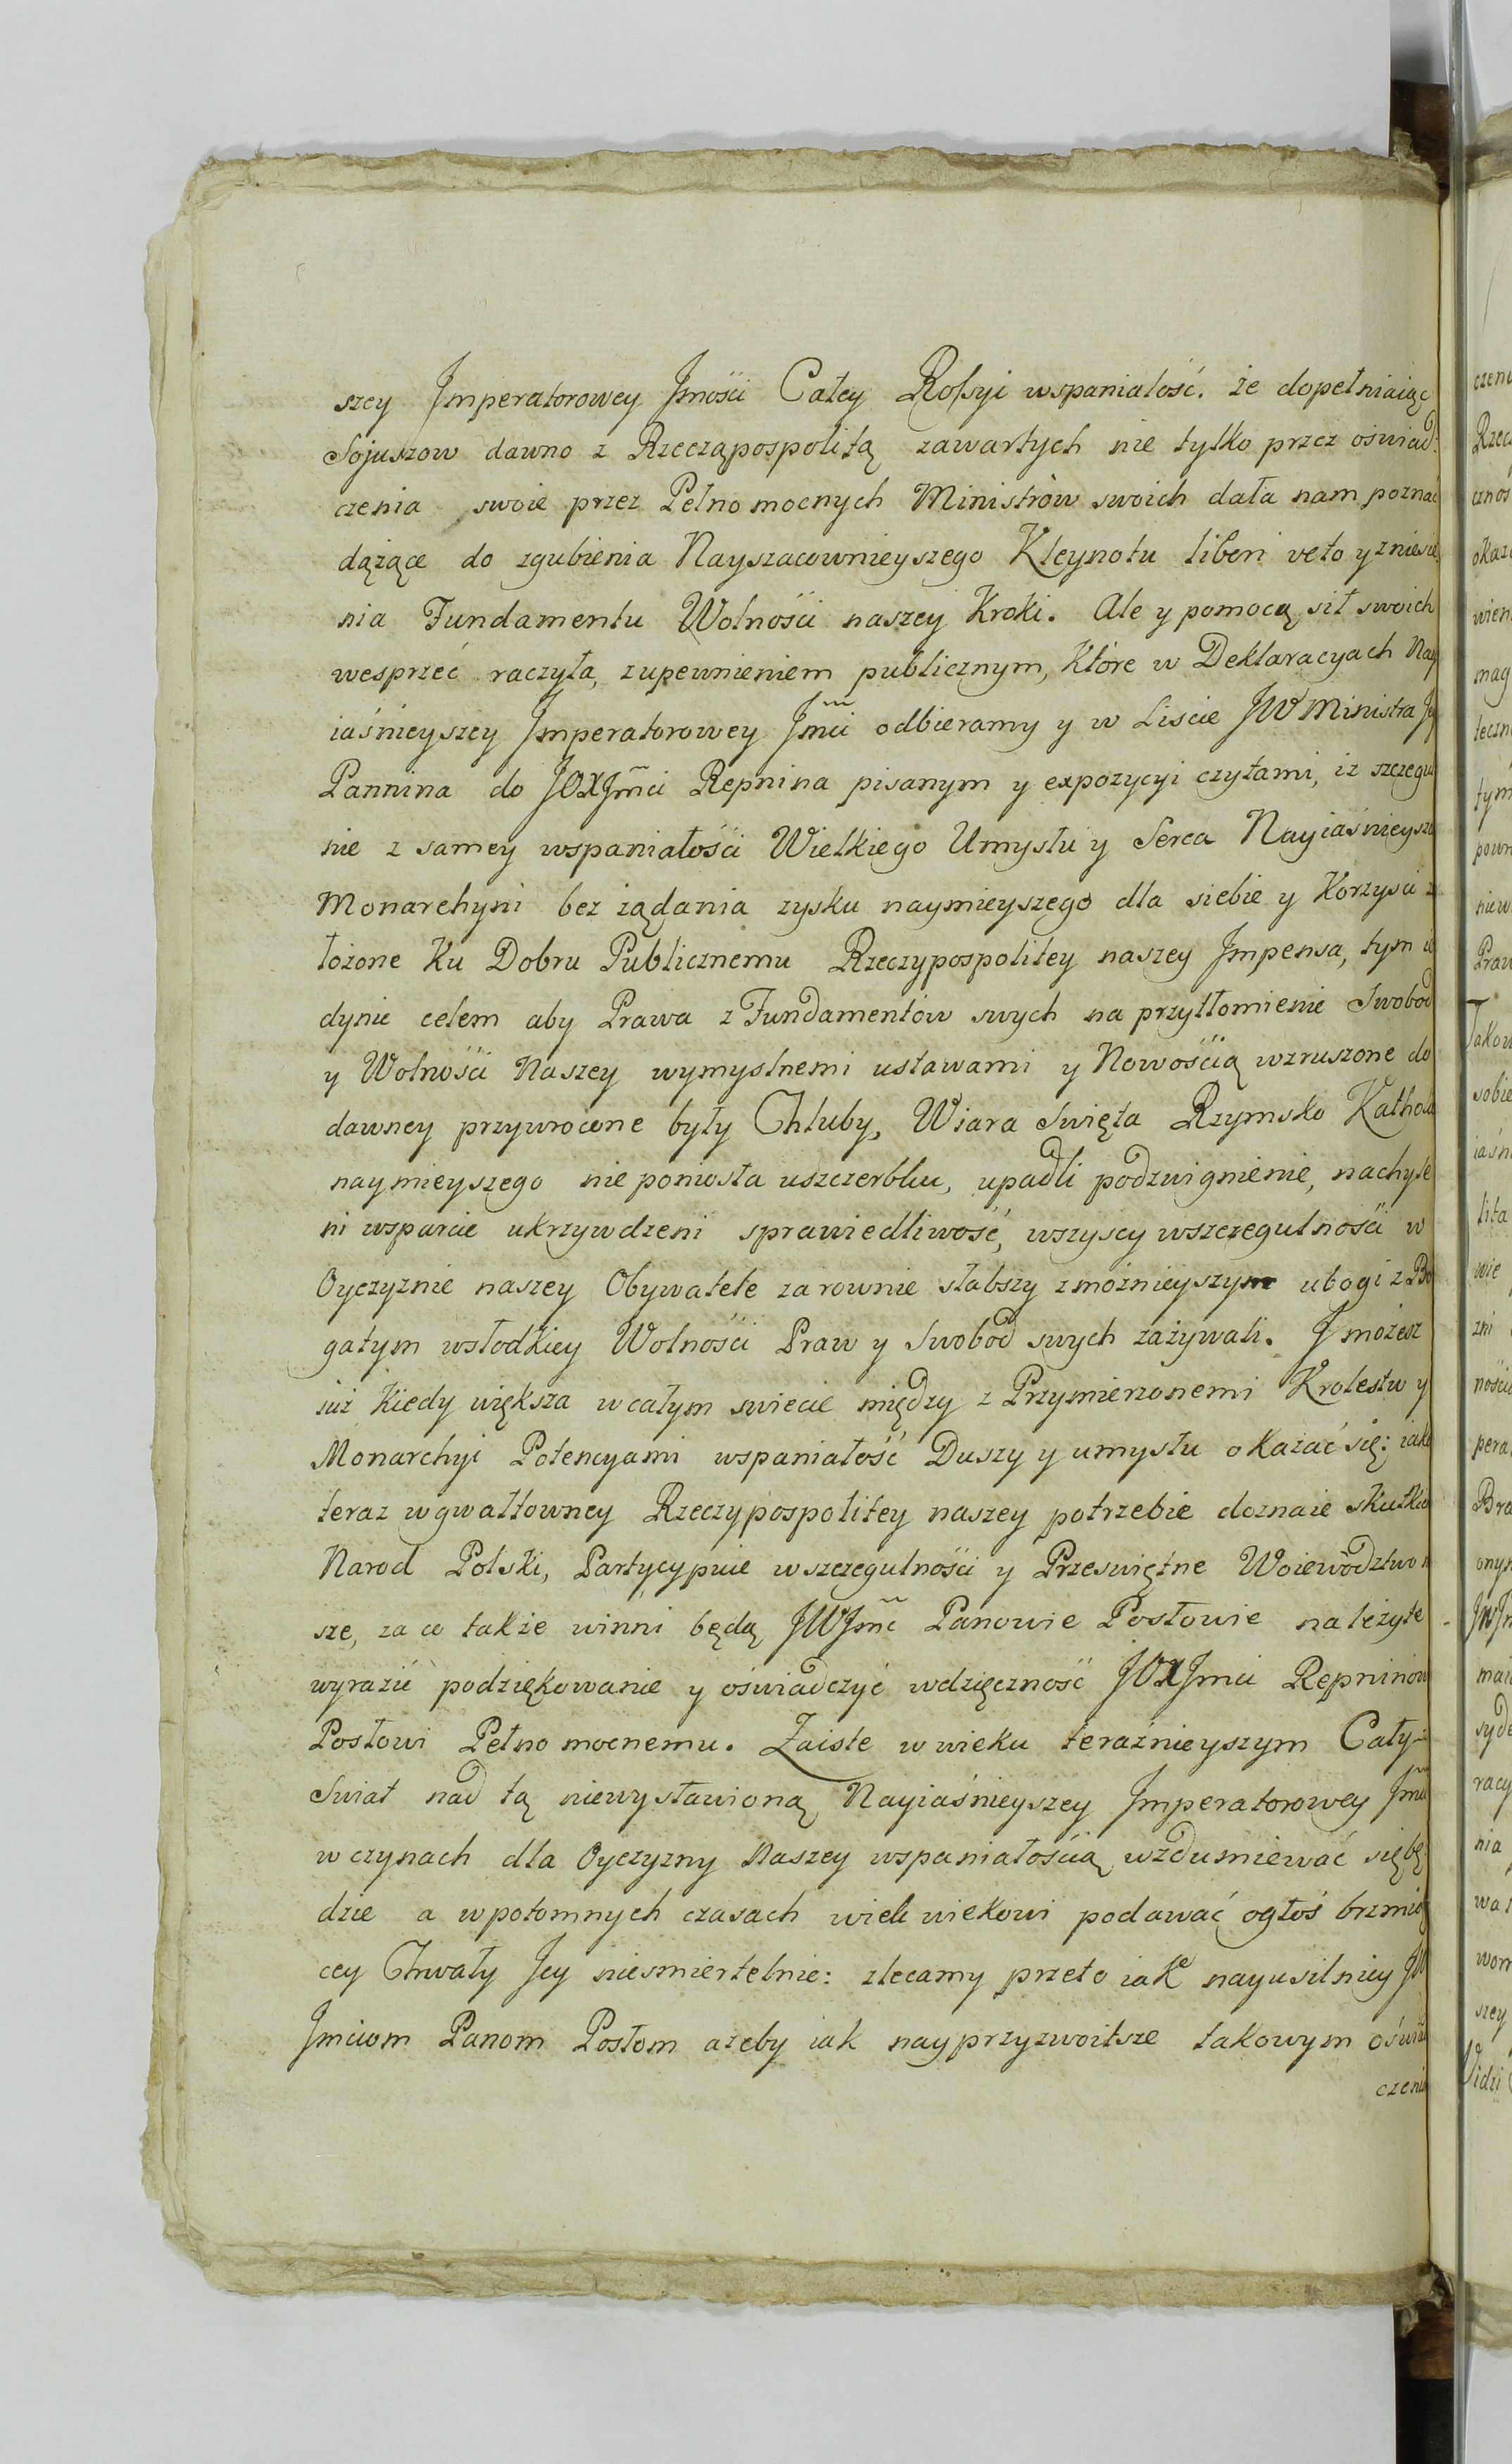 szey Jmperatorowey Jmości Całey Rossyi wspaniałość. że dopełniaiąc
Sojuszow dawno z Rzecząpospolitą zawartych nie tylko przez oświad:
czenia swoie przez Pełno mocnych Ministrów swoich dała nam poznać
dążące do zgubienia Nayszacownieyszego Kleynotu liberi veto y zniesie
nia Fundamentu Wolności naszey Kroki. Ale y pomocą sił swoich
wesprzeć raczyła, zupewnieniem publicznym, Które w Deklaracyach Nay
iaśnieyszey Jmperatorowey Jmci odbieramy y w Liscie JW Ministra
Pannina do JOXJmci Repnina pisanym y expozycyi czytami, iż szczegul
nie z samey wspaniałości Wielkiego Umysłu y Serca Nayiaśnieysze
Monarchyni bez żądania zysku naymieyszego dla siebie y Korzysci
łożone Ku Dobru Publicznemu Rzeczypospolitey naszey Jmpensa, tym ie
dynie celem aby Prawa z Fundamentów swych na przytłomienie Swobod
y Wolności Naszey wymyslnemi ustawami y Nowością wzruszone do
dawney przywrocone były Chluby, Wiara Swięta Rzymsko Katholi
naymieyszego nie poniosła uszczerbku, upadli podzwignienie, nachyle
ni wsparcie ukrzywdzeni sprawiedliwość, wszyscy wszczegulności w
Oyczyznie naszey Obywatele zarownie słabszy zmożnieyszym ubogi z Bo
gatym wsłodkiey Wolności Praw y Swobod swych zażywali. J możesz
iuż Kiedy większa wcałym swiecie między z Przymierzonemi Krolestw y
Monarchyi Potencyami wspaniałość Duszy y umysłu oKazać się; iako
teraz wgwałtowney Rzeczypospolitey naszey potrzebie doznaie skutków
Narod Polski, Partycypuie wszczegulności y Przeswiętne Woiewództwo n
sze, za co takze winni będą JWJmc Panowie Posłowie należyte
wyrazić podziękowanie y oświadczyć wdzięczność JOXJmci Repninow
Posłowi Pełno mocnemu. Zaiste wwieku teraźnieyszym Cały
Swiat nad tą niewysławioną Nayiaśnieyszey Jmperatorowey Jmci
wczynach dla Oyczyzny Naszey wspaniałością wzdumiewać się bę
dzie a wpotomnych czasach wiek wiekowi podawać ogłoś brzmią
cey Chwały Jey niesmiertelnie: zlecamy przeto iak nayusilniey JW
Jmciom Panom Posłom azeby iak nayprzyzwoitsze takowym oświa
czenia